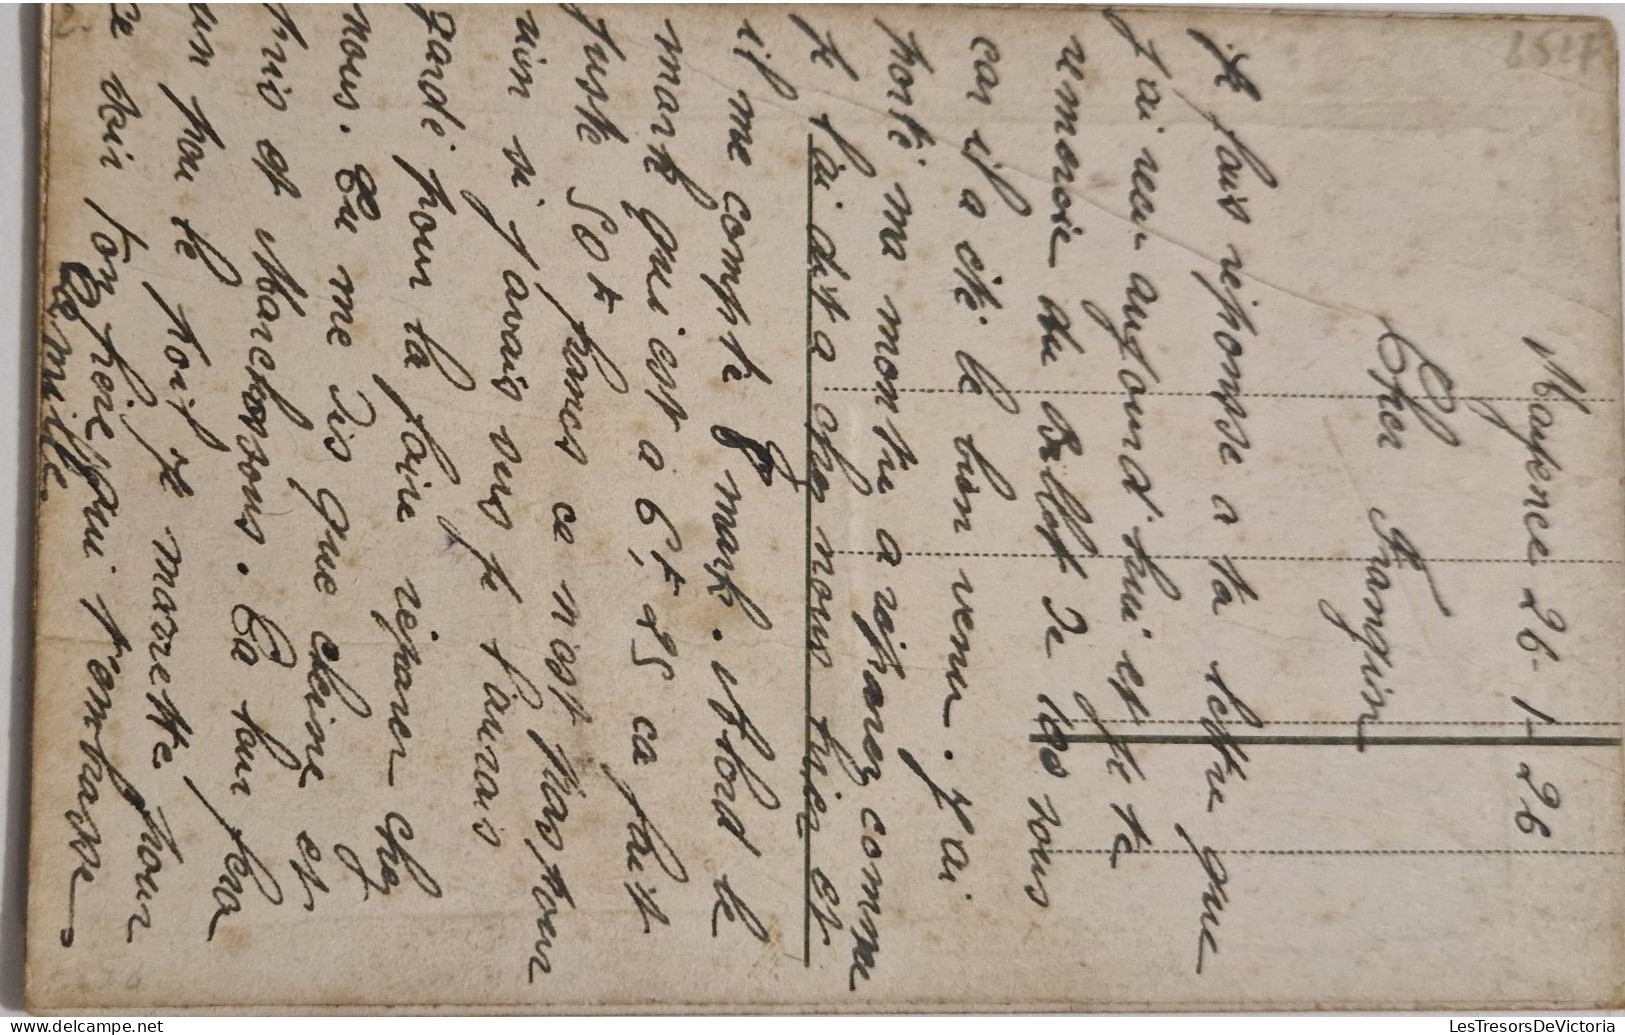 Mayence 26-1-26
Cher Frangin
je fais réponse a ta lettre que
j'ai reçu aujourd'hui et je te
remercie du Billet de 100 sous
car il a été le bien venu. J'ai
porté ma montre a réparez comme
je l'ai dit a chez nous hier et
il me compte 8 mark. Abord le
mark qui est a 6f,25 ca fait
juste 50f francs ce n'est pas pour
rien si j'avais sus je l'aurais
gardé pour la faire réparer chez
nous. Tu me dis que cheine et
puis et Marchssous. Ca leur fera
un peu le poil je marrette pour
ce soir ton frère qui t'embrasse
Camille.
2527
LesTresorsDeVictoria